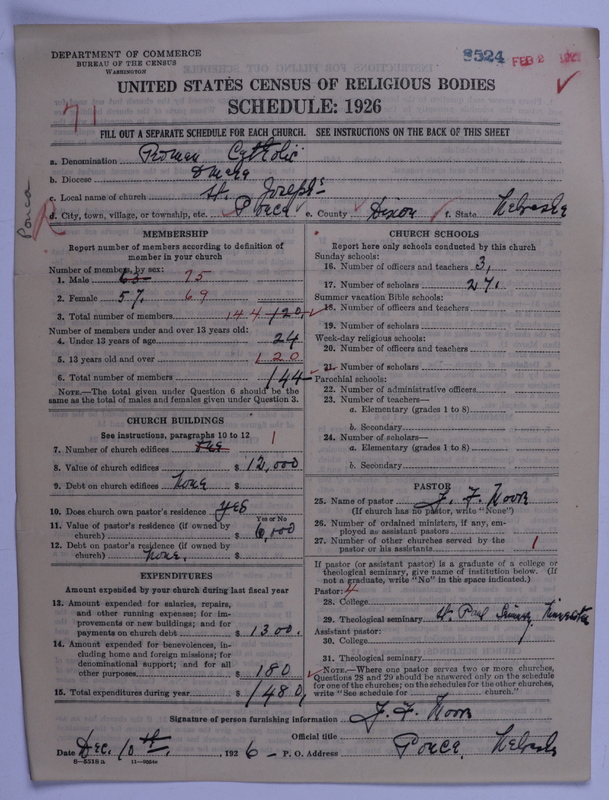 DEPARTMENT OF COMMERCE
BUREAU OF THE CENSUS
WASHINGTON
8524 FEB 2
UNITED STATES CENSUS OF RELIGIOUS BODIES
SCHEDULE: 1926
71
FILL OUT A SEPARATE SCHEDULE FOR EACH CHURCH. SEE INSTRUCTIONS ON THE BACK OF THIS SHEET
a. Denomination Roman Catholic
b. Diocese Omaha
c. Local name of church St. Joseph's
d. City, town, village, or township, etc. Ponca e. County Dixon f. State Nebraska
Ponca
R
MEMBERSHIP
Report number of members according to definition of
member in your church
Number of members, by sex:
1. Male 63 75
2. Female 57. 69
3. Total number of members 144 120
Number of members under and over 13 years old:
4. Under 13 years of age 24
5. 13 years old and over 120
6. Total number of members 144
NOTE.—The total given under Question 6 should be the
same as the total of males and females given under Question 3.
CHURCH BUILDINGS
See instructions, paragraphs 10 to 12
7. Number of church edifices One 1
8. Value of church edifices $ 12,000
9. Debt on church edifices None $
10. Does church own pastor's residence? Yes
Yes or No
11. Value of pastor's residence (if owned by
church) $ 6,000
12. Debt on pastor's residence (if owned by
church) None. $
EXPENDITURES
Amount expended by your church during last fiscal year
13. Amount expended for salaries, repairs,
and other running expenses; for im-
provements or new buildings; and for
payments on church debt $ 1300.
14. Amount expended for benevolences, in-
cluding home and foreign missions; for
denominational support; and for all
other purposes $ 180
15. Total expenditures during year $ 1480,
CHURCH SCHOOLS
Report here only schools conducted by this church
Sunday schools:
16. Number of officers and teachers 3,
17. Number of scholars 27.
Summer vacation Bible schools:
18. Number of officers and teachers
19. Number of scholars
Week-day religious schools:
20. Number of officers and teachers
21. Number of scholars
Parochial schools:
22. Number of administrative officers
23. Number of teachers—
a. Elementary (grades 1 to 8)
b. Secondary
24. Number of scholars—
a. Elementary (grades 1 to 8)
b. Secondary
PASTOR
25. Name of pastor J. F. Moor
(If church has no pastor, write "None")
26. Number of ordained ministers, if any, em-
ployed as assistant pastors
27. Number of other churches served by the
pastor or his assistants 1
If pastor (or assistant pastor) is a graduate of a college or
theological seminary, give name of institution below. (If
not a graduate, write "No" in the space indicated.)
Pastor: 4
28. College
29. Theological seminary St. Paul Seminary, Minnesota
Assistant pastor:
30. College
31. Theological seminary
NOTE.—Where one pastor serves two or more churches,
Questions 28 and 29 should be answered only on the schedule
for one of the churches; on the schedules for the other churches,
write "See schedule for church."
Signature of person furnishing information J. F. Moor
Official title
Date Dec. 10th. 1926 P. O. Address Ponca, Nebraska
8—5518a